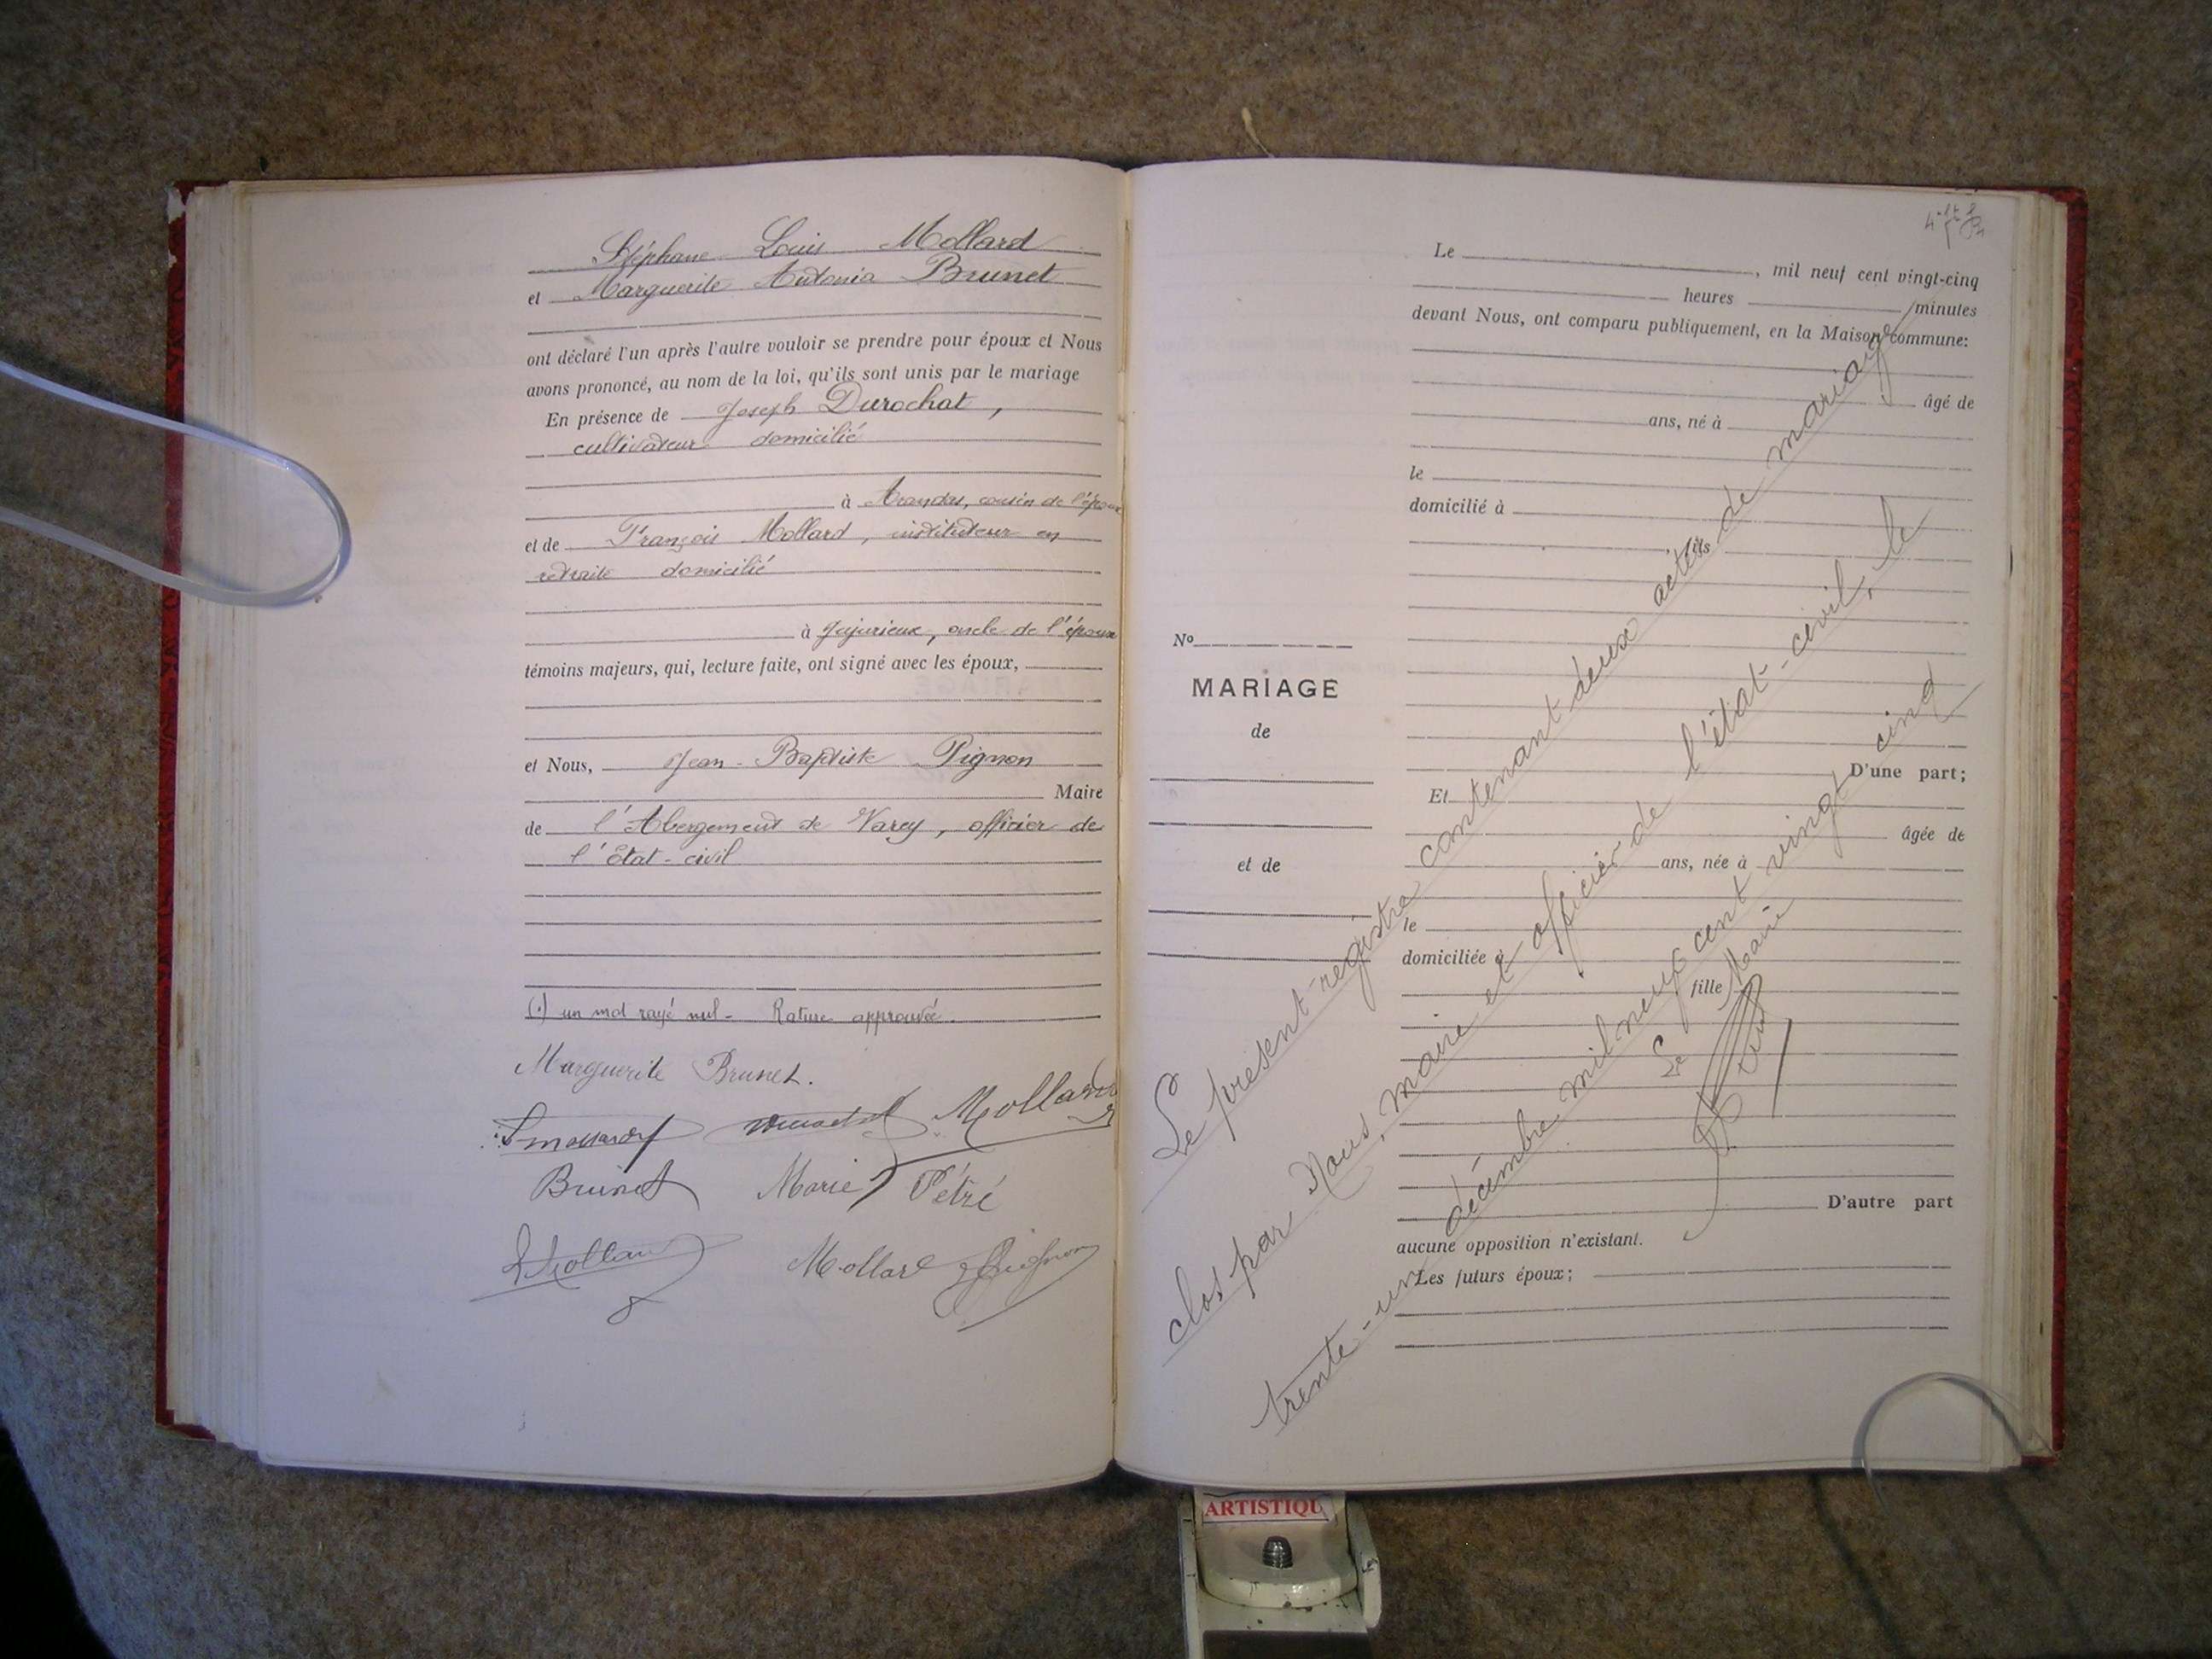 Stéphane Louis Mollard
et Marguerite Antonia Brunet
ont déclaré l'un après l'autre vouloir se prendre pour époux et Nous
avons prononcé, au nom de la loi, qu'ils sont unis par le mariage
En présence de Joseph Durochat,
cultivateur domicilié
à Arandas, cousin de l'époux
et de François Mollard, instituteur en
retraite domicilié
à Jujurieux, oncle de l'époux
témoins majeurs, qui, lecture faite, ont signé avec les époux,
et Nous, Jean-Baptiste Pignon
Maire
de l'Abergement de Varey, officier de
l'Etat-civil
(.) un mot rayé nul - Rature approuvée.
Marguerite Brunet.
Mollard
Brunet Marie Pétré
Mollard Pignon
Le , mil neuf cent vingt-cinq
heures minutes
devant Nous, ont comparu publiquement, en la Maison commune:
âgé de
ans, né à
le
domicilié à
fils
No
MARIAGE
de
et de
D'une part;
Et
âgée de
ans, née à
le
domiciliée à
fille
D'autre part
aucune opposition n'existant.
Les futurs époux;
Le présent registre contenant deux actes de mariage
clos par Nous, maire et officier de l'état-civil, le
trente-un décembre mil neuf cent vingt cinq
Le Maire
ARTISTIQU